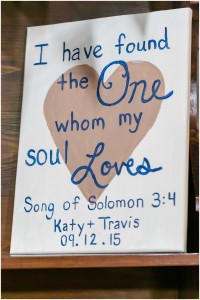 I have found
the One
whom my
soul Loves
Song of Solomon 3:4
Katy + Travis
09.12.15